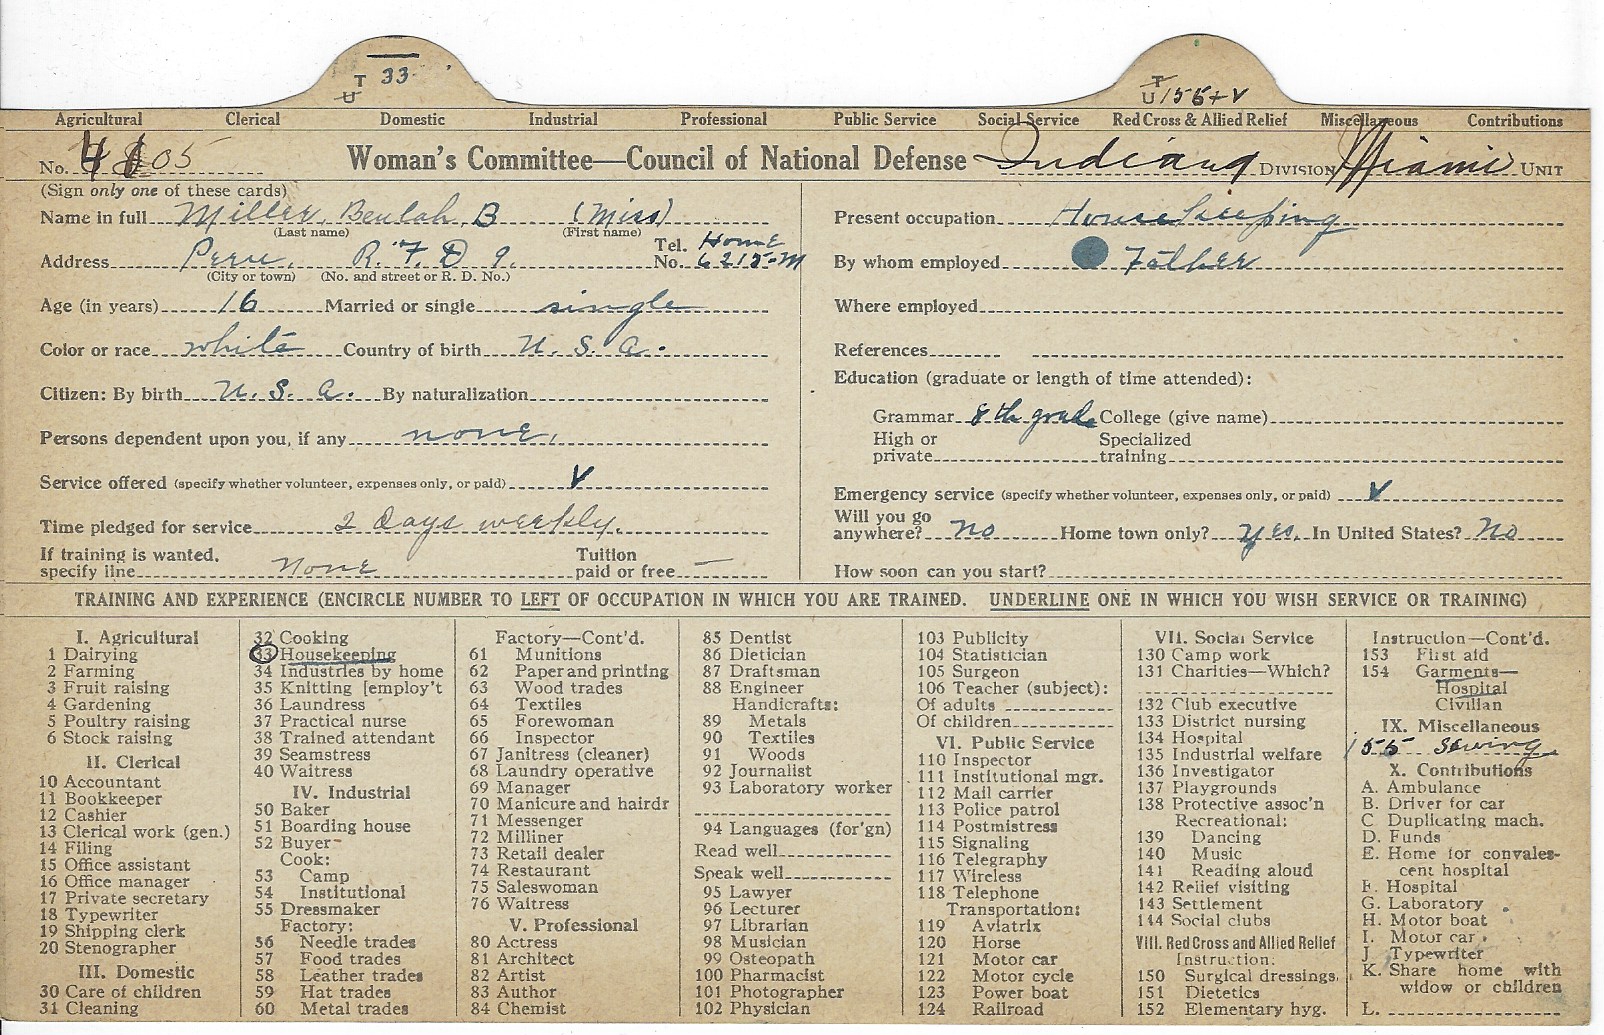 T
U 33
T
U 155+V
Agricultural Clerical Domestic Industrial Professional Public Service Social Service Red Cross & Allied Relief Miscellaneous Contributions
No. 05 Woman's Committee—Council of National Defense Indiana DIVISION Miami UNIT
(Sign only one of these cards)
Name in full Miller, Beulah, B (Miss)
(Last name) (First name)
Address Peru, R. F. D 9. Tel. No. Home 6215-M
(City or town) (No. and street or R. D. No.)
Age (in years) 16 Married or single single
Color or race white Country of birth U. S. a.
Citizen: By birth U. S. a. By naturalization
Persons dependent upon you, if any none.
Service offered (specify whether volunteer, expenses only, or paid) V
Time pledged for service 2 days weekly.
If training is wanted, specify line none Tuition paid or free —
Present occupation Housekeeping
By whom employed Father
Where employed
References
Education (graduate or length of time attended):
Grammar 8th grade College (give name)
High or private Specialized training
Emergency service (specify whether volunteer, expenses only, or paid) V
Will you go anywhere? no Home town only? yes. In United States? No
How soon can you start?
TRAINING AND EXPERIENCE (ENCIRCLE NUMBER TO LEFT OF OCCUPATION IN WHICH YOU ARE TRAINED. UNDERLINE ONE IN WHICH YOU WISH SERVICE OR TRAINING)
I. Agricultural
1 Dairying
2 Farming
3 Fruit raising
4 Gardening
5 Poultry raising
6 Stock raising
II. Clerical
10 Accountant
11 Bookkeeper
12 Cashier
13 Clerical work (gen.)
14 Filing
15 Office assistant
16 Office manager
17 Private secretary
18 Typewriter
19 Shipping clerk
20 Stenographer
III. Domestic
30 Care of children
31 Cleaning
32 Cooking
33 Housekeeping
34 Industries by home
35 Knitting [employ't
36 Laundress
37 Practical nurse
38 Trained attendant
39 Seamstress
40 Waitress
IV. Industrial
50 Baker
51 Boarding house
52 Buyer
Cook:
53 Camp
54 Institutional
55 Dressmaker
Factory:
56 Needle trades
57 Food trades
58 Leather trades
59 Hat trades
60 Metal trades
Factory—Cont'd.
61 Munitions
62 Paper and printing
63 Wood trades
64 Textiles
65 Forewoman
66 Inspector
67 Janitress (cleaner)
68 Laundry operative
69 Manager
70 Manicure and hairdr
71 Messenger
72 Milliner
73 Retail dealer
74 Restaurant
75 Saleswoman
76 Waitress
V. Professional
80 Actress
81 Architect
82 Artist
83 Author
84 Chemist
85 Dentist
86 Dietician
87 Draftsman
88 Engineer
Handicrafts:
89 Metals
90 Textiles
91 Woods
92 Journalist
93 Laboratory worker
94 Languages (for'gn)
Read well
Speak well
95 Lawyer
96 Lecturer
97 Librarian
98 Musician
99 Osteopath
100 Pharmacist
101 Photographer
102 Physician
103 Publicity
104 Statistician
105 Surgeon
106 Teacher (subject):
Of adults
Of children
VI. Public Service
110 Inspector
111 Institutional mgr.
112 Mail carrier
113 Police patrol
114 Postmistress
115 Signaling
116 Telegraphy
117 Wireless
118 Telephone
Transportation:
119 Aviatrix
120 Horse
121 Motor car
122 Motor cycle
123 Power boat
124 Railroad
VII. Social Service
130 Camp work
131 Charities—Which?
132 Club executive
133 District nursing
134 Hospital
135 Industrial welfare
136 Investigator
137 Playgrounds
138 Protective assoc'n
Recreational:
139 Dancing
140 Music
141 Reading aloud
142 Relief visiting
143 Settlement
144 Social clubs
VIII. Red Cross and Allied Relief
Instruction:
150 Surgical dressings.
151 Dietetics
152 Elementary hyg.
Instruction—Cont'd.
153 First aid
154 Garments—
Hospital
Civilian
IX. Miscellaneous
155 sewing
X. Contributions
A. Ambulance
B. Driver for car
C. Duplicating mach.
D. Funds
E. Home for convales-
cent hospital
F. Hospital
G. Laboratory
H. Motor boat
I. Motor car
J. Typewriter
K. Share home with
widow or children
L.